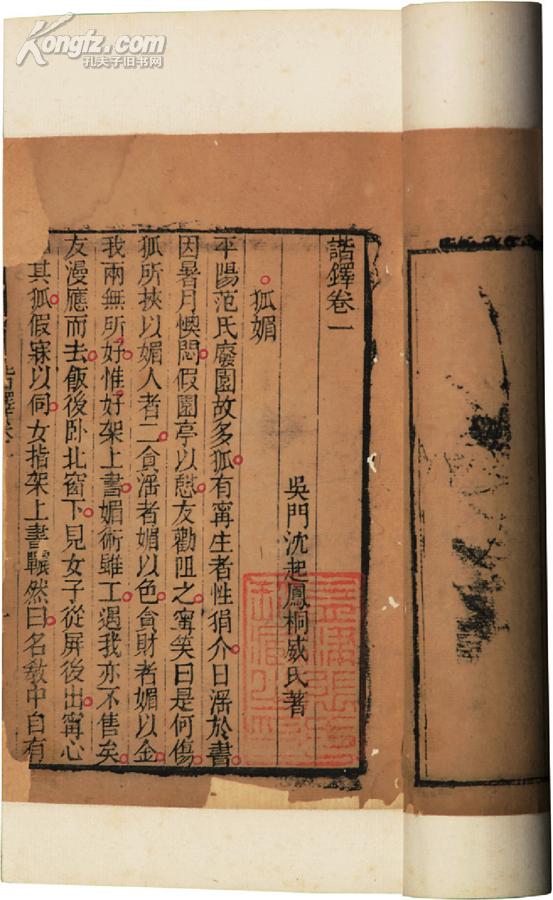 Kongfz.com
孔夫子旧书网
諧鐸卷一
吳門沈起鳳桐威氏著
狐媚
平陽范氏廢園故多狐有甯生者性狷介日滛於書
因暑月懊悶假園亭以憩友勸阻之甯笑曰是何傷
狐所挾以媚人者二貪滛者媚以色貪財者媚以金
我兩無所好惟好架上書媚術雖工遇我亦不售矣
友漫應而去飯後卧北窗下見女子從屏後出甯心
其狐假寐以伺女指架上書冁然曰名敎中自有